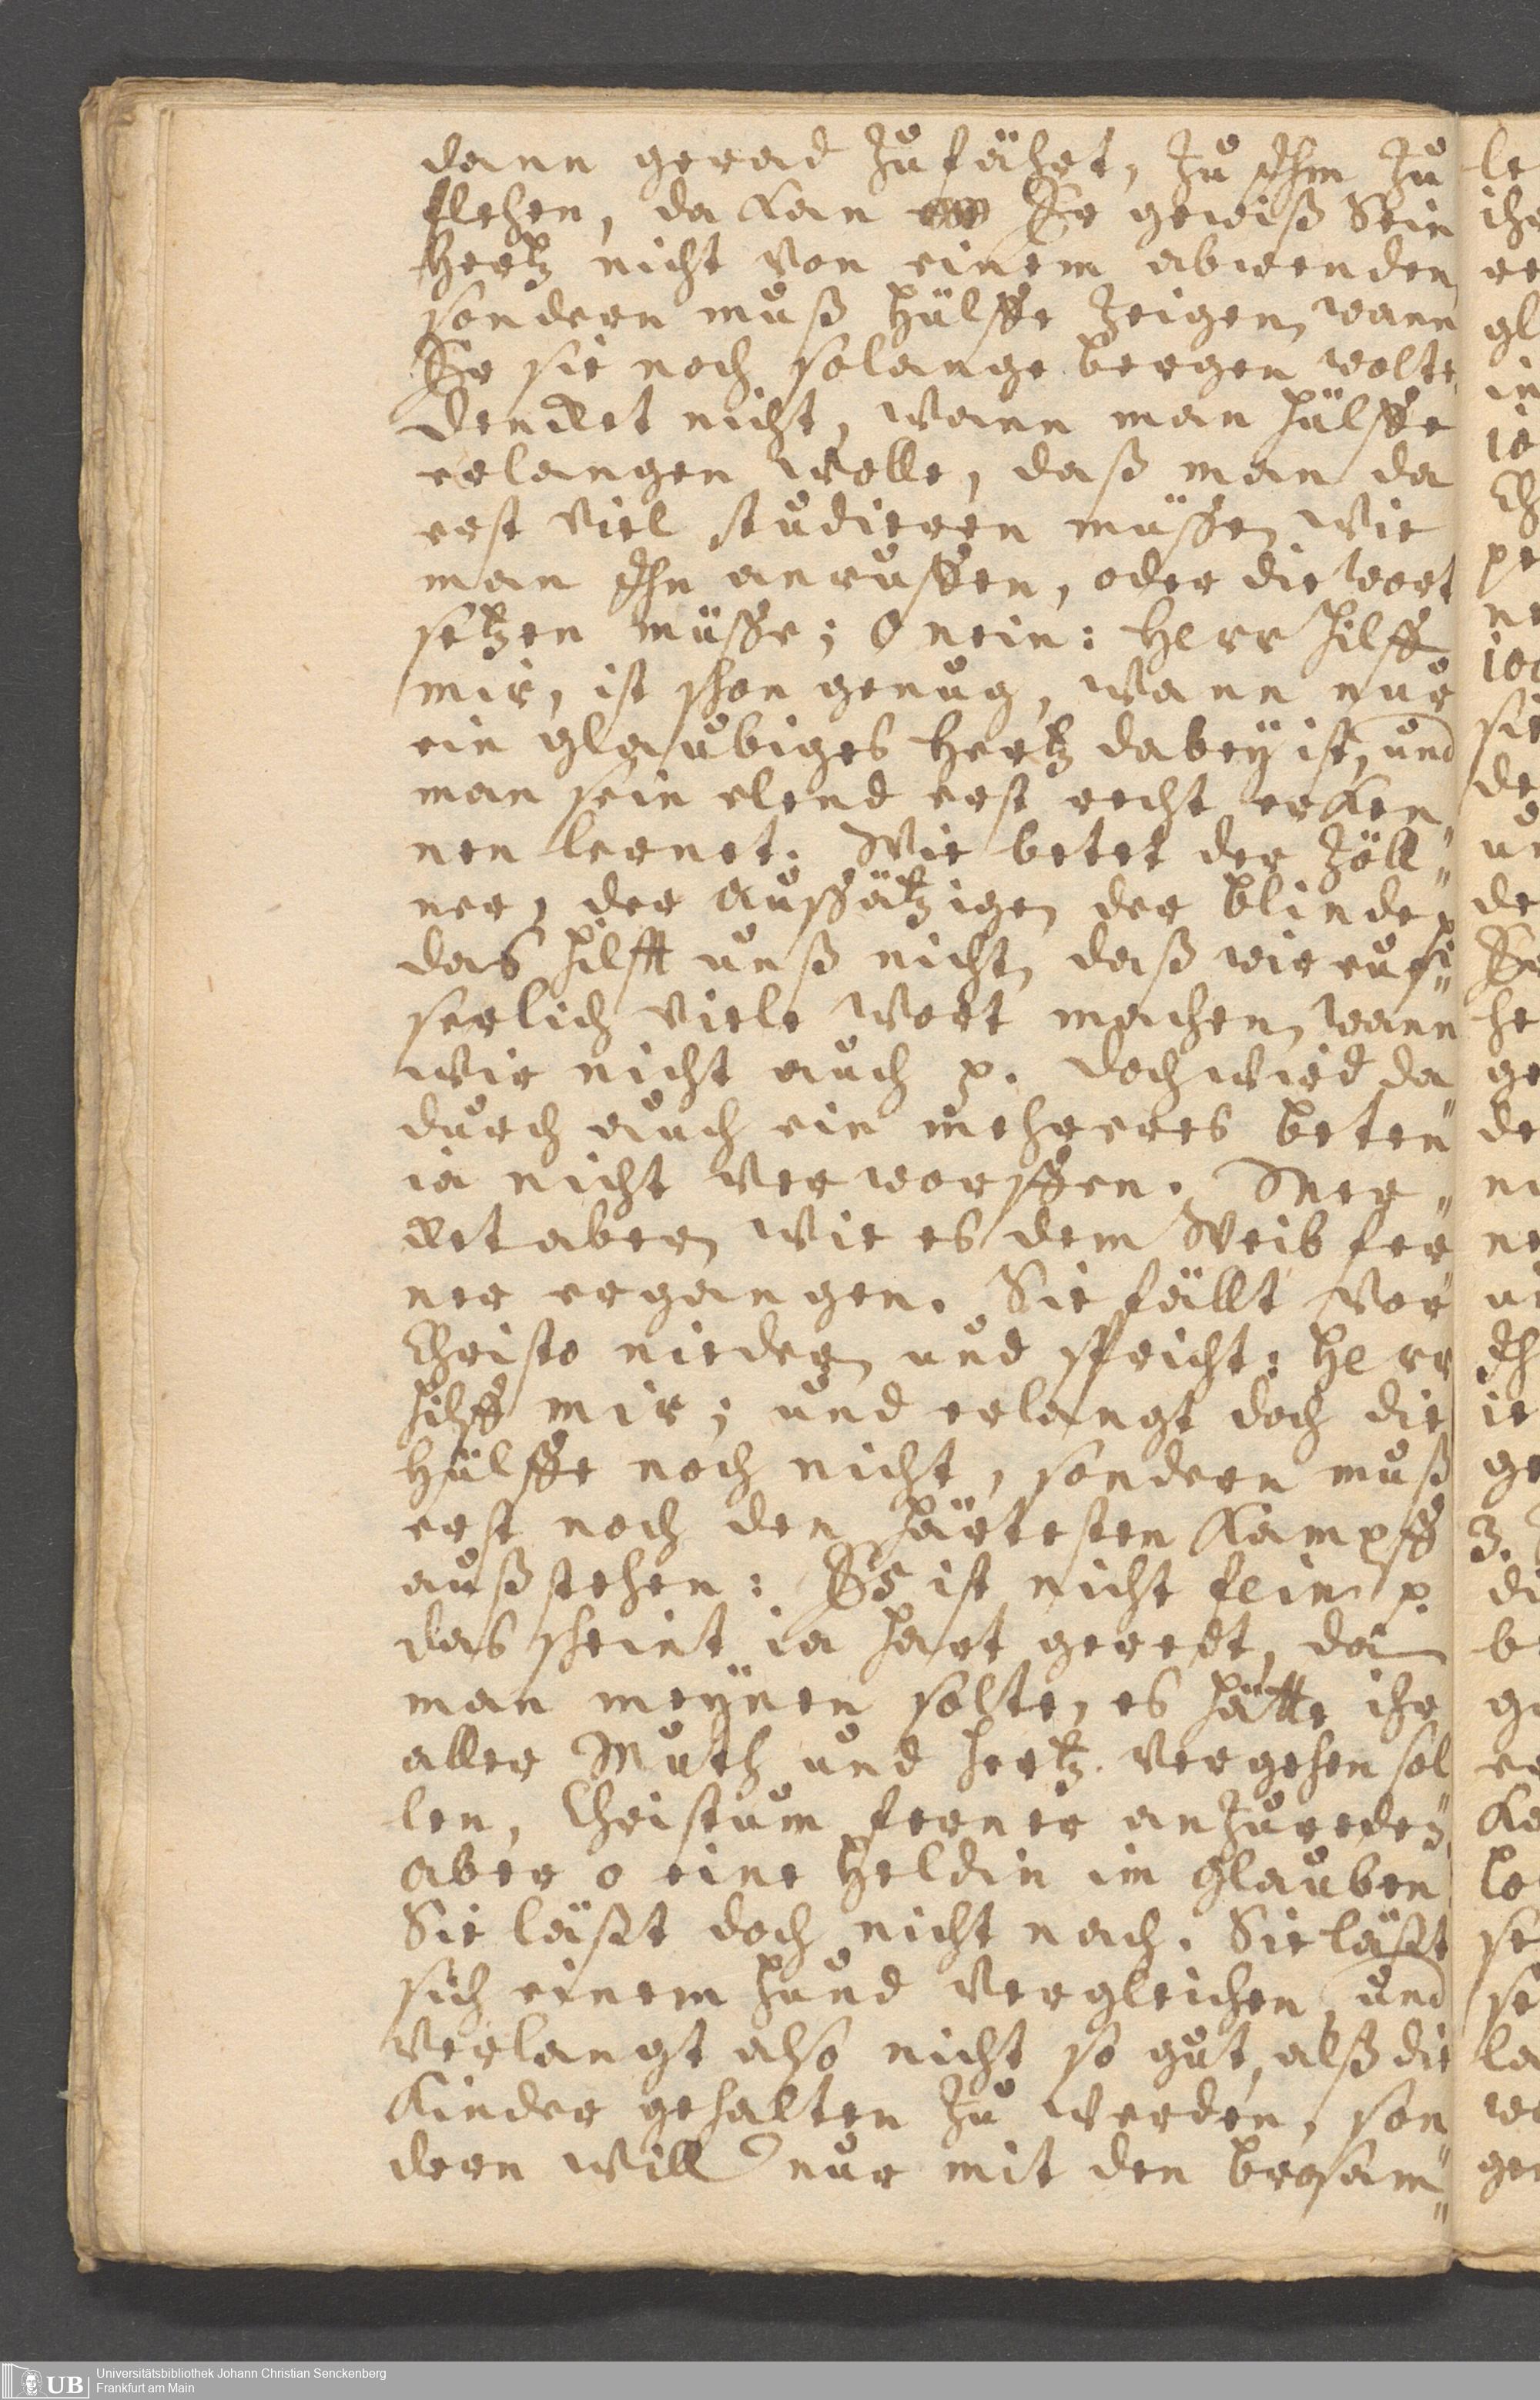 dann gerad zufährt, zu Ihm zu
flehen, da kan Er gewiß Sein
Hertz nicht von einem abwenden,
sondern muß hülffe zeigen, wann
Er sie noch solange bergen wolte.
Dencket nicht, wann man hülffe
erlangen wolle, daß man da
erst viel studieren müsse, wie
man Ihn anruffen, oder die wort
setzen müsse; O nein: HErr hilff
mir, ist schon genug, wann nur
ein glaubiges Hertz dabey ist, und
man sein elend erst recht erken„
nen lernet. Wie betet der Zöll„
ner, der Aussätzige, der blinde,
das hilfft unß nicht, daß wir eus„
serlich viele Wort machen, wann
wir nicht auch p. doch wird da
durch auch ein mehreres beten
ja nicht verworffen. Mer„
cket aber, wie es dem Weib fer„
ner ergangen. Sie fällt vor
Christo nieder, und spricht: HErr
hilff mir; und erlangt doch die
Hülffe noch nicht, sondern muß
erst noch den härtesten Kampff
außstehen: Es ist nicht fein p.
das scheint ja hart geredt, da
man meynen solte, es hätte ihr
aller Muth und hertz vergehen sol
len, Christum ferner anzureden,
aber o eine Heldin im glauben
Sie läßt doch nicht nach. Sie läßt
sich einem hund vergleichen, und
verlangt also nicht so gut, alß die
Kinder gehalten zu werden, son
dern will nur mit den brosam„
Universitätsbibliothek Johann Christian Senckenberg
Frankfurt am Main
UB